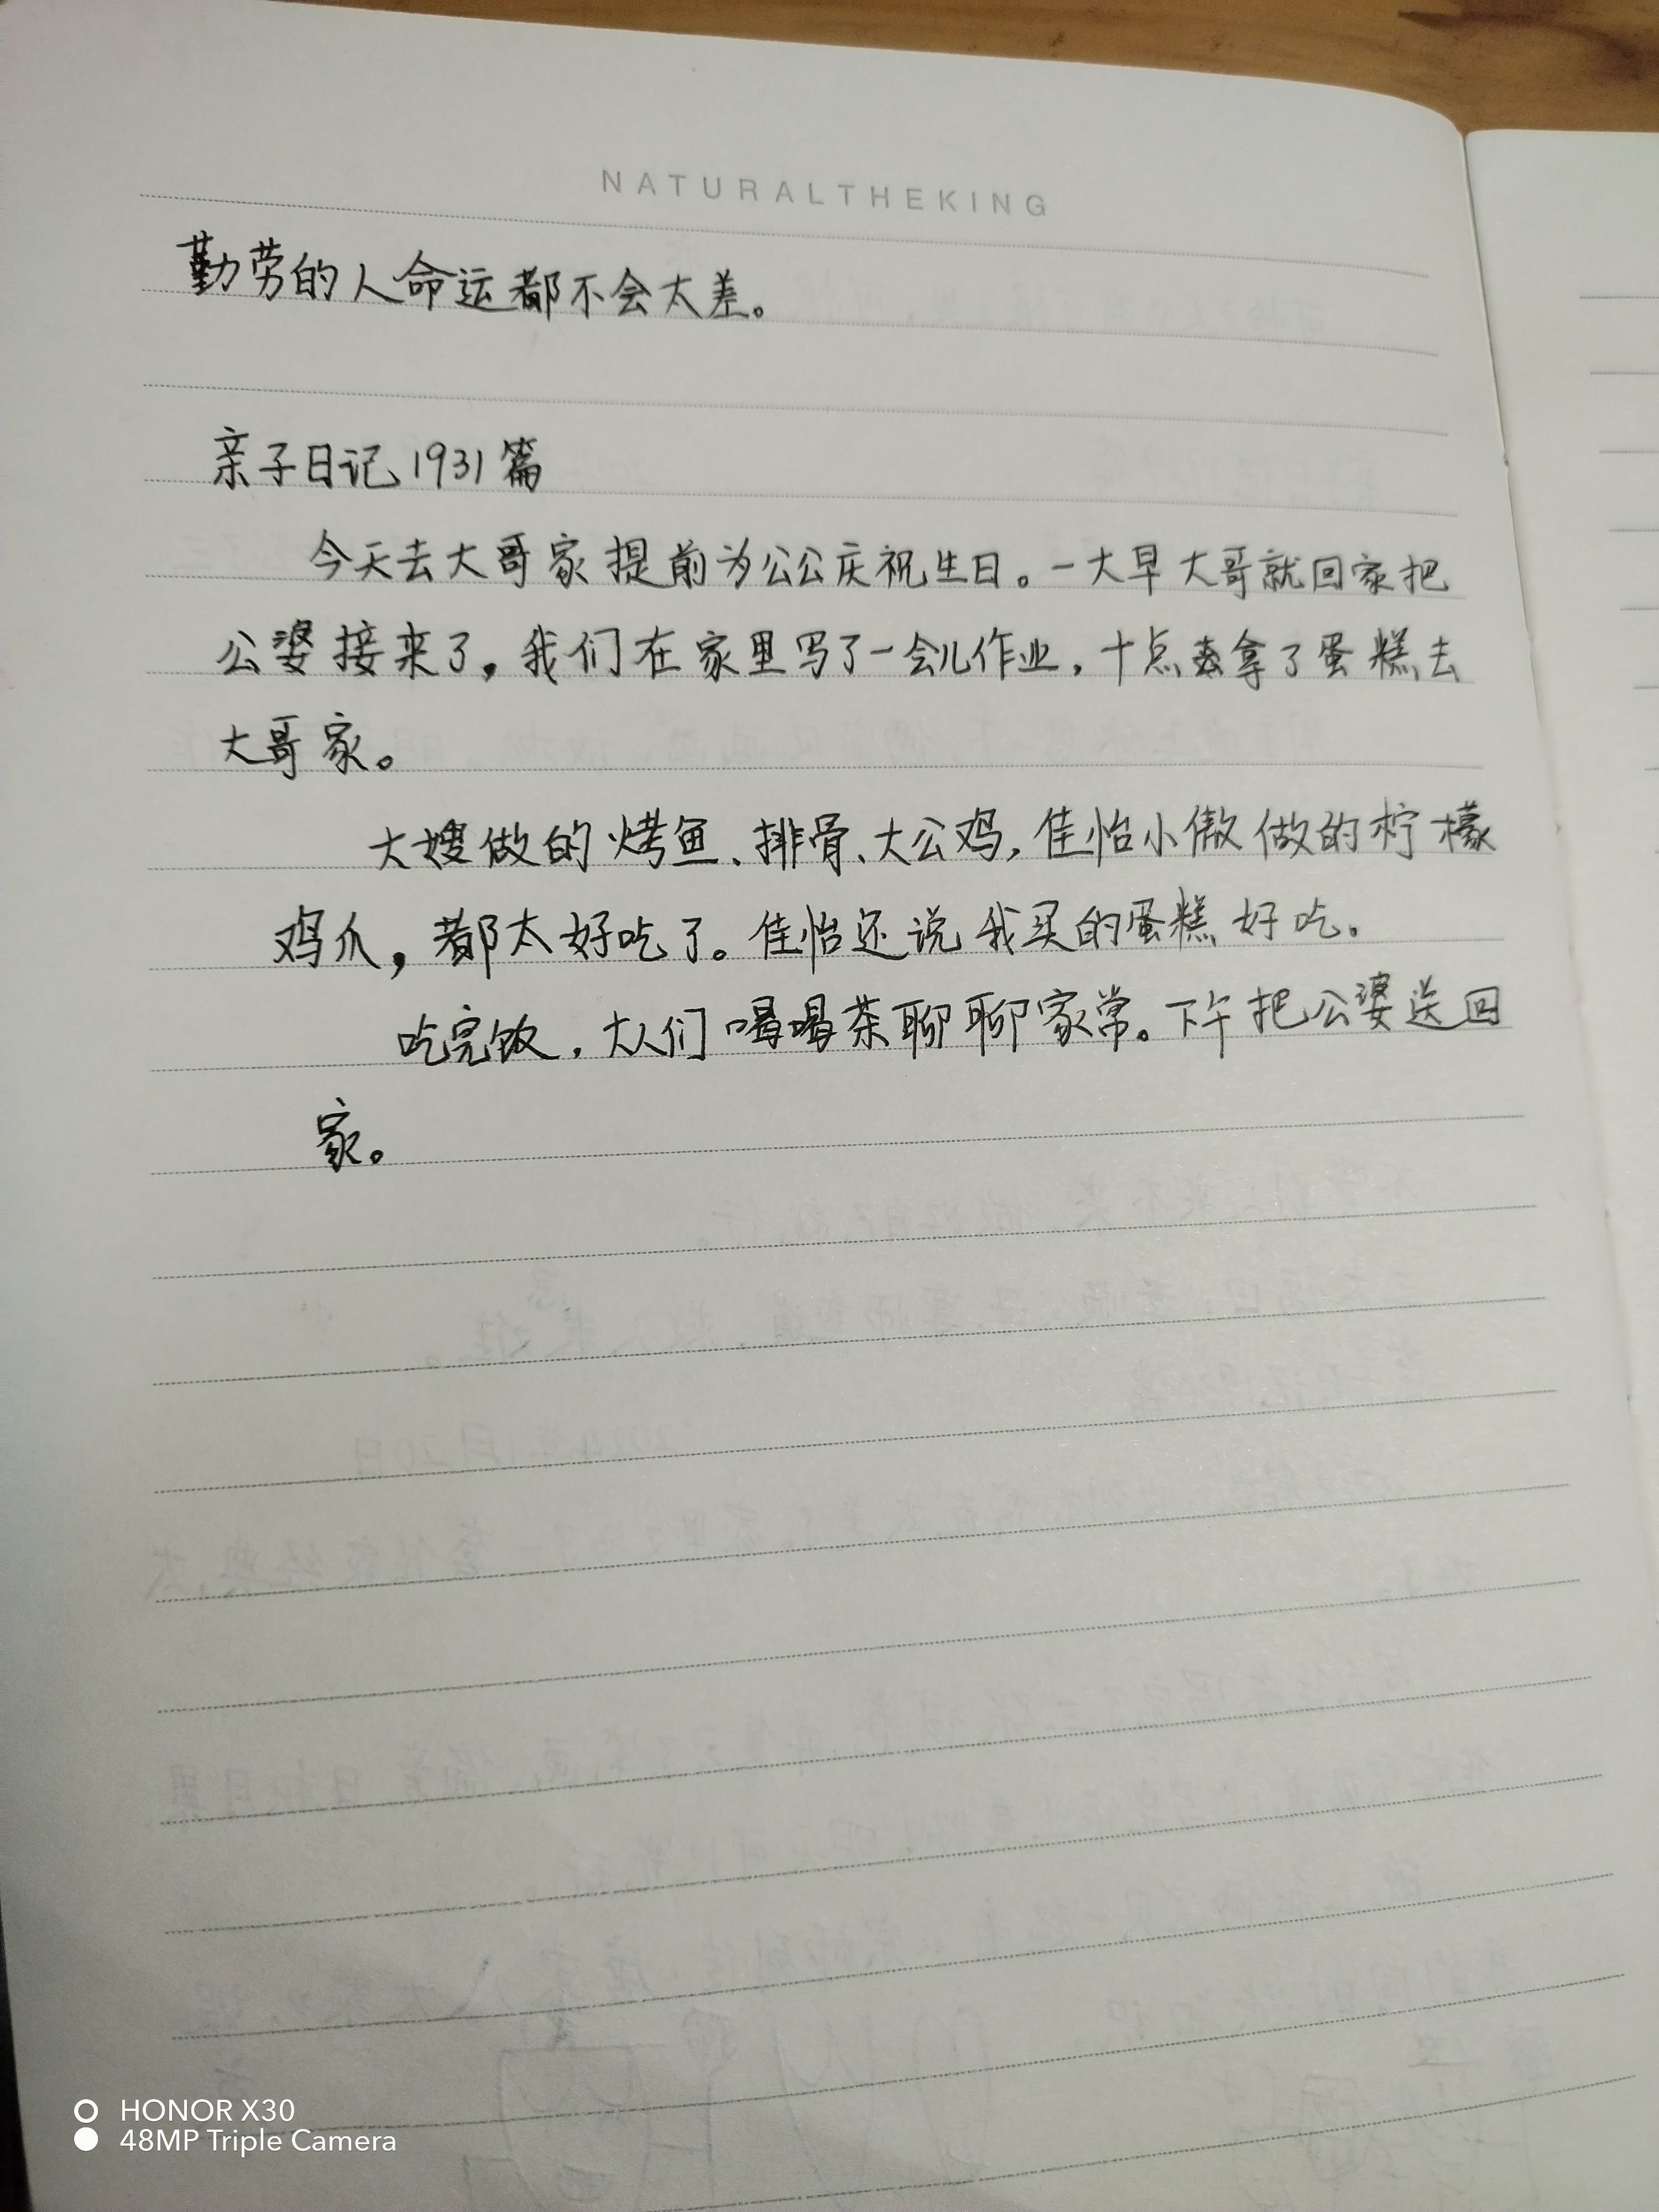 NATURALTHEKING
勤劳的人命运都不会太差。
亲子日记1931篇
今天去大哥家提前为公公庆祝生日。一大早大哥就回家把
公婆接来了，我们在家里写了一会儿作业，十点去拿了蛋糕去
大哥家。
大嫂做的烤鱼、排骨、大公鸡，佳怡小傲做的柠檬
鸡爪，都太好吃了。佳怡还说我买的蛋糕好吃。
吃完饭，大人们喝喝茶聊聊家常。下午把公婆送回
家。
HONOR X30
48MP Triple Camera